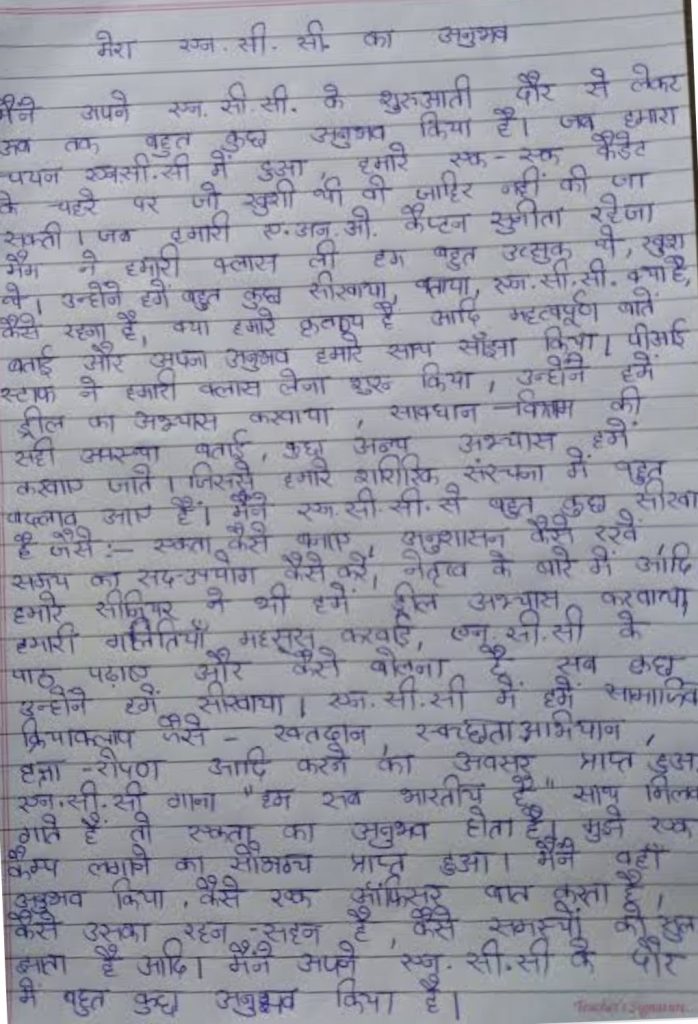 मेरा एन. सी. सी. का अनुभव
मैंने अपने एन. सी. सी. के शुरुआती दौर से लेकर
अब तक बहुत कुछ अनुभव किया है। जब हमारा
चयन एनसी.सी में हुआ, हमारे एक-एक कैडेट
के चहरे पर जो खुशी थी वो जाहिर नहीं की जा
सकती। जब हमारी ए.अन.ओ. कैप्टन सुनीता रहेजा
मैम ने हमारी क्लास ली हम बहुत उत्सुक थे, खुश
थे। उन्होंने हमें बहुत कुछ सीखाया, बताया, एन.सी.सी. क्या है,
कैसे रहना है, क्या हमारे कर्तव्य है आदि महत्वपूर्ण बातें
बताई और अपना अनुभव हमारे साथ साँझा किया। पीआई
स्टाफ ने हमारी क्लास लेना शुरू किया, उन्होंने हमें
ड्रील का अभ्यास करवाया, सावधान-विश्राम की
सही अवस्था बताई, कुछ अन्य अभ्यास हमें
करवाए जाते। जिससे हमारे शारीरिक संरचना में बहुत
बदलाव आए हैं। मैंने एन.सी.सी. से बहुत कुछ सीखा
है जैसे:- एकता कैसे बनाए, अनुशासन कैसे रखें,
समय का सद-उपयोग कैसे करें, नेतृत्व के बारे में आदि
हमारे सीनियर ने भी हमें ड्रील अभ्यास करवाया,
हमारी गलितियाँ महसूस करवाई, एन.सी.सी के
पाठ पढ़ाए और कैसे बोलना है सब कुछ
उन्होंने हमें सीखाया। एन.सी.सी में हमें सामाजिक
क्रियाक्लाप जैसे - रक्तदान, स्वच्छता अभियान,
-रोपण आदि करने का अवसर प्राप्त हुआ
एन.सी.सी गाना "हम सब भारतीय है" साथ मिलकर
गाते हैं तो एकता का अनुभव होता है। मुझे एक
कैम्प लगाने का सौभाग्य प्राप्त हुआ। मैंने वहाँ
अनुभव किया, कैसे एक ऑफिसर बात करता है,
कैसे उसका रहन-सहन है, कैसे समस्यों को हल
है आदि। मैंने अपने एन. सी.सी के दौर
में बहुत कुछ अनुभव किया है।
Teacher's Signature